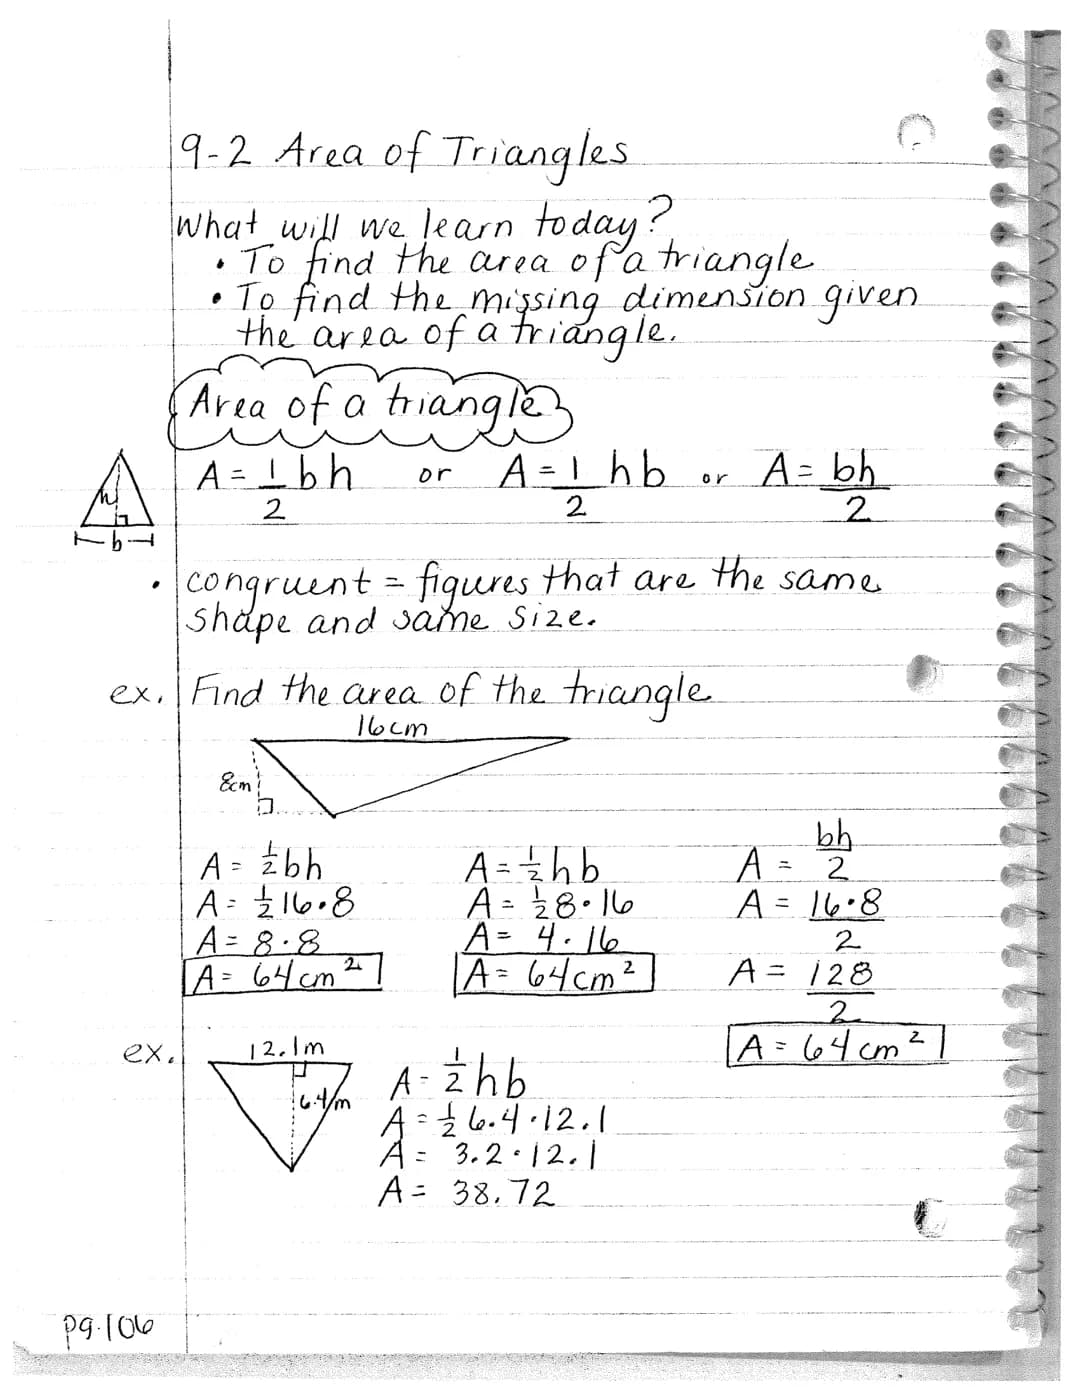 9-2 Area of Triangles
What will we learn today?
• To find the area of a triangle
• To find the missing dimension given
the area of a triangle.
Area of a triangle
A = 1/2 bh or A = 1/2 hb or A = bh/2
h
b
• congruent = figures that are the same
shape and same size.
ex. Find the area of the triangle
16cm
8cm
A = 1/2 bh
A = 1/2 16•8
A = 8·8
A = 64cm²
A = 1/2 hb
A = 1/2 8•16
A = 4•16
A = 64cm²
A = bh/2
A = 16•8/2
A = 128/2
A = 64cm²
ex.
12.1m
6.4m
A = 1/2 hb
A = 1/2 6.4•12.1
A = 3.2•12.1
A = 38.72
pg.106